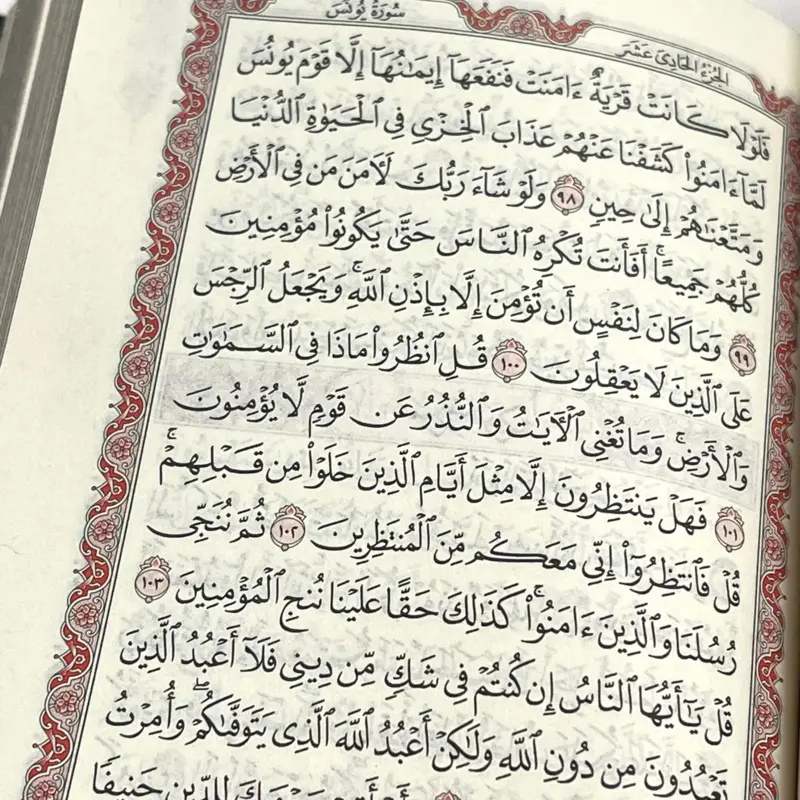 الجزء الحادي عشر
سورة يونس
فَلَوْلَا كَانَتْ قَرْيَةٌ ءَامَنَتْ فَنَفَعَهَآ إِيمَٰنُهَآ إِلَّا قَوْمَ يُونُسَ
لَمَّآ ءَامَنُوا۟ كَشَفْنَا عَنْهُمْ عَذَابَ ٱلْخِزْىِ فِى ٱلْحَيَوٰةِ ٱلدُّنْيَا
وَمَتَّعْنَٰهُمْ إِلَىٰ حِينٍ ٩٨ وَلَوْ شَآءَ رَبُّكَ لَءَامَنَ مَن فِى ٱلْأَرْضِ
كُلُّهُمْ جَمِيعًا ۚ أَفَأَنتَ تُكْرِهُ ٱلنَّاسَ حَتَّىٰ يَكُونُوا۟ مُؤْمِنِينَ
٩٩ وَمَا كَانَ لِنَفْسٍ أَن تُؤْمِنَ إِلَّا بِإِذْنِ ٱللَّهِ ۚ وَيَجْعَلُ ٱلرِّجْسَ
عَلَى ٱلَّذِينَ لَا يَعْقِلُونَ ١٠٠ قُلِ ٱنظُرُوا۟ مَاذَا فِى ٱلسَّمَٰوَٰتِ
وَٱلْأَرْضِ ۚ وَمَا تُغْنِى ٱلْءَايَٰتُ وَٱلنُّذُرُ عَن قَوْمٍ لَّا يُؤْمِنُونَ
١٠١ فَهَلْ يَنتَظِرُونَ إِلَّا مِثْلَ أَيَّامِ ٱلَّذِينَ خَلَوْا۟ مِن قَبْلِهِمْ ۚ
قُلْ فَٱنتَظِرُوٓا۟ إِنِّى مَعَكُم مِّنَ ٱلْمُنتَظِرِينَ ١٠٢ ثُمَّ نُنَجِّى
رُسُلَنَا وَٱلَّذِينَ ءَامَنُوا۟ ۚ كَذَٰلِكَ حَقًّا عَلَيْنَا نُنجِ ٱلْمُؤْمِنِينَ ١٠٣
قُلْ يَٰٓأَيُّهَا ٱلنَّاسُ إِن كُنتُمْ فِى شَكٍّ مِّن دِينِى فَلَآ أَعْبُدُ ٱلَّذِينَ
تَعْبُدُونَ مِن دُونِ ٱللَّهِ وَلَٰكِنْ أَعْبُدُ ٱللَّهَ ٱلَّذِى يَتَوَفَّىٰكُمْ ۖ وَأُمِرْتُ
لِلدِّينِ حَنِيفًا